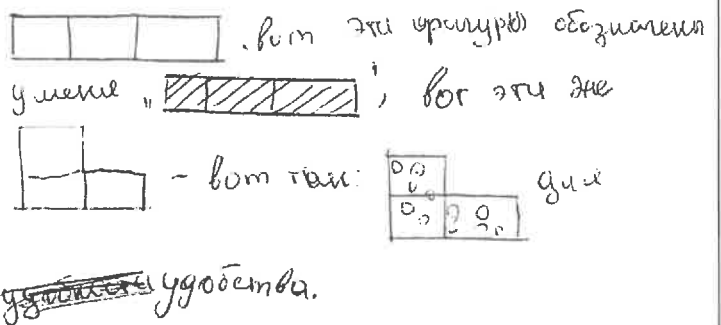 , вот эти фигуры обозначены
у меня „ “, вот эти же
– вот так: для
удобства.